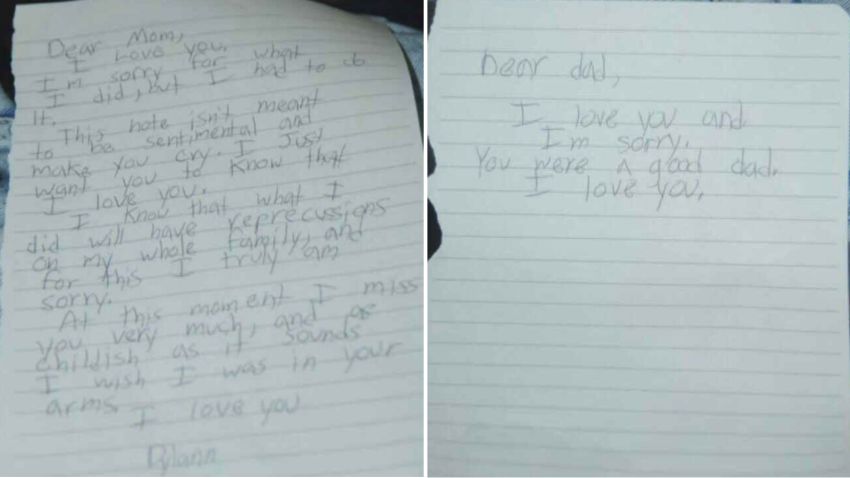 Dear Mom,
I Love you.
I'm sorry for what
I did, but I had to do
it.
This note isn't meant
to be sentimental and
make you cry. I Just
want you to know that
I love you.
I know that what I
did will have reprecussions
on my whole family, and
for this I truly am
sorry.
At this moment I miss
you very much, and as
childish as it sounds
I wish I was in your
arms
I love you
Dylann
Dear dad,
I love you and
I'm sorry.
You were a good dad.
I love you.